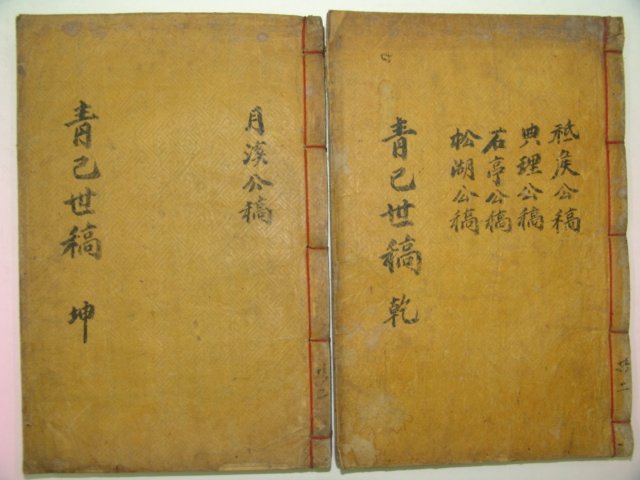 祗矦公稿
典理公稿
石亭公稿
松湖公稿
青己世稿 乾
共二
月溪公稿
青己世稿 坤
共二